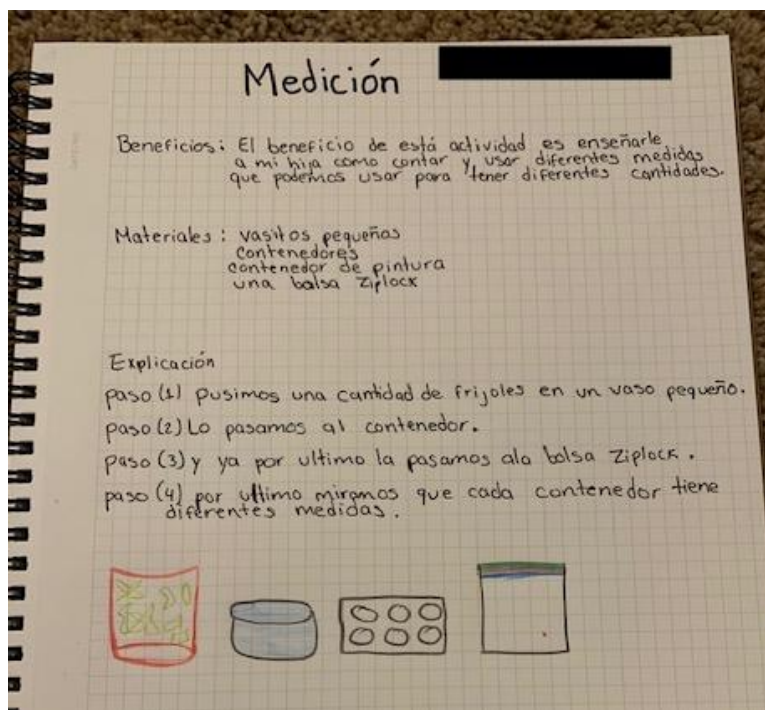 Medición
Beneficios: El beneficio de está actividad es enseñarle
a mi hija como contar y usar diferentes medidas
que podemos usar para tener diferentes cantidades.
Materiales: vasitos pequeños
contenedores
contenedor de pintura
una balsa Ziplock
Explicación
paso (1) pusimos una cantidad de frijoles en un vaso pequeño.
paso (2) Lo pasamos al contenedor.
paso (3) y ya por ultimo la pasamos ala bolsa Ziplock.
paso (4) por ultimo miramos que cada contenedor tiene
diferentes medidas.